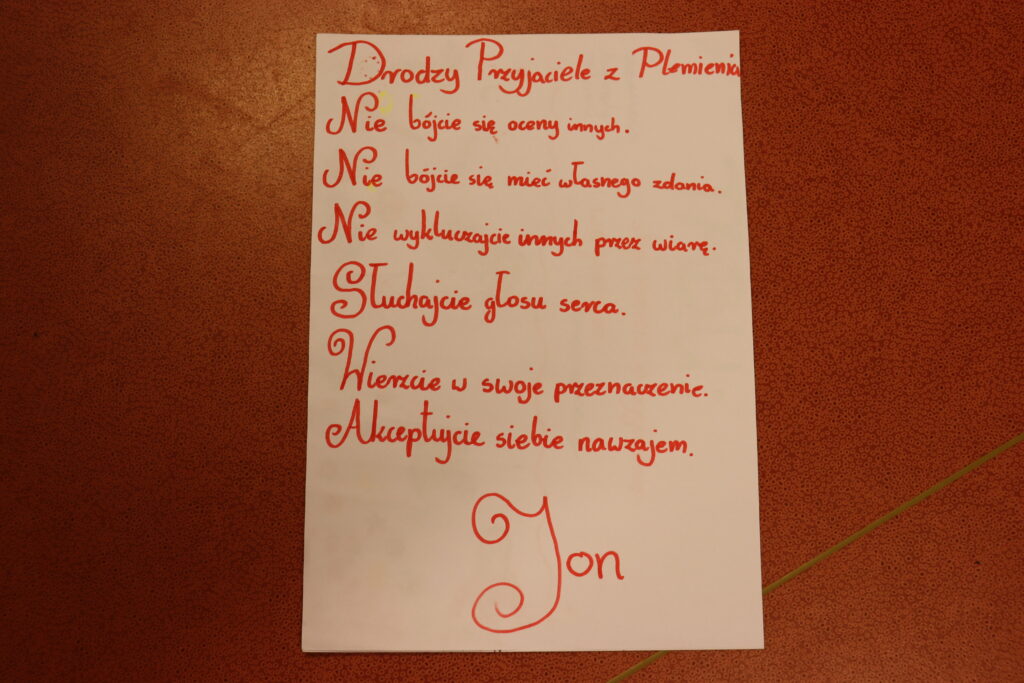 Drodzy Przyjaciele z Plemienia
Nie bójcie się oceny innych.
Nie bójcie się mieć własnego zdania.
Nie wykluczajcie innych przez wiarę.
Słuchajcie głosu serca.
Wierzcie w swoje przeznaczenie.
Akceptujcie siebie nawzajem.
Jon